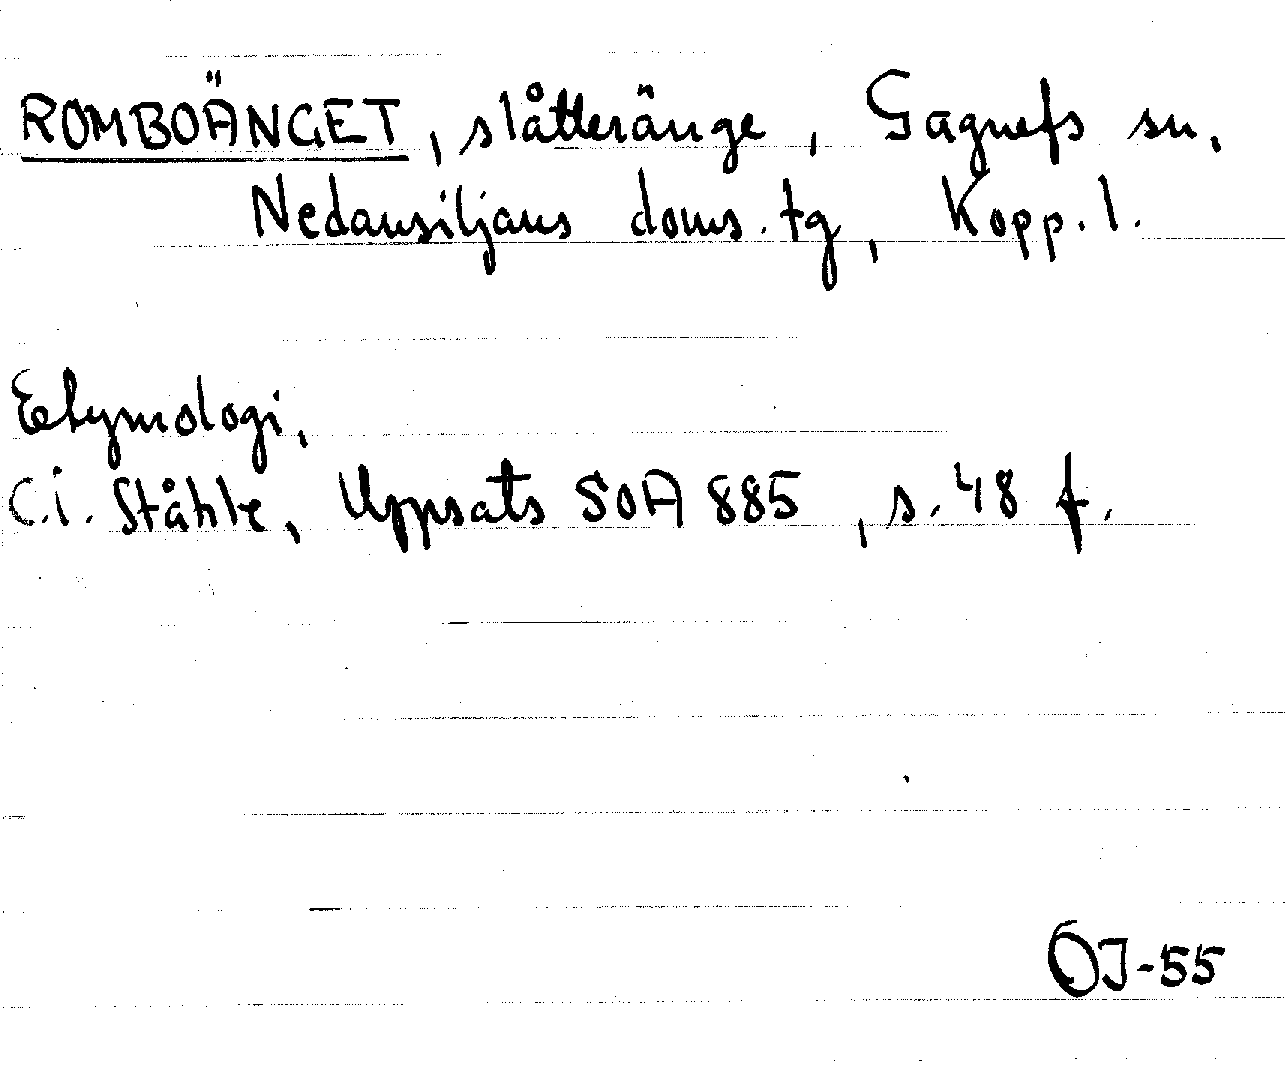 ROMBOÄNGET, slåtteränge, Gagnefs sn,
Nedansiljans doms.tg, Kopp.l.
Etymologi,
C.I. Ståhle, Uppsats SOA 885, s. 48 f.
OJ-55